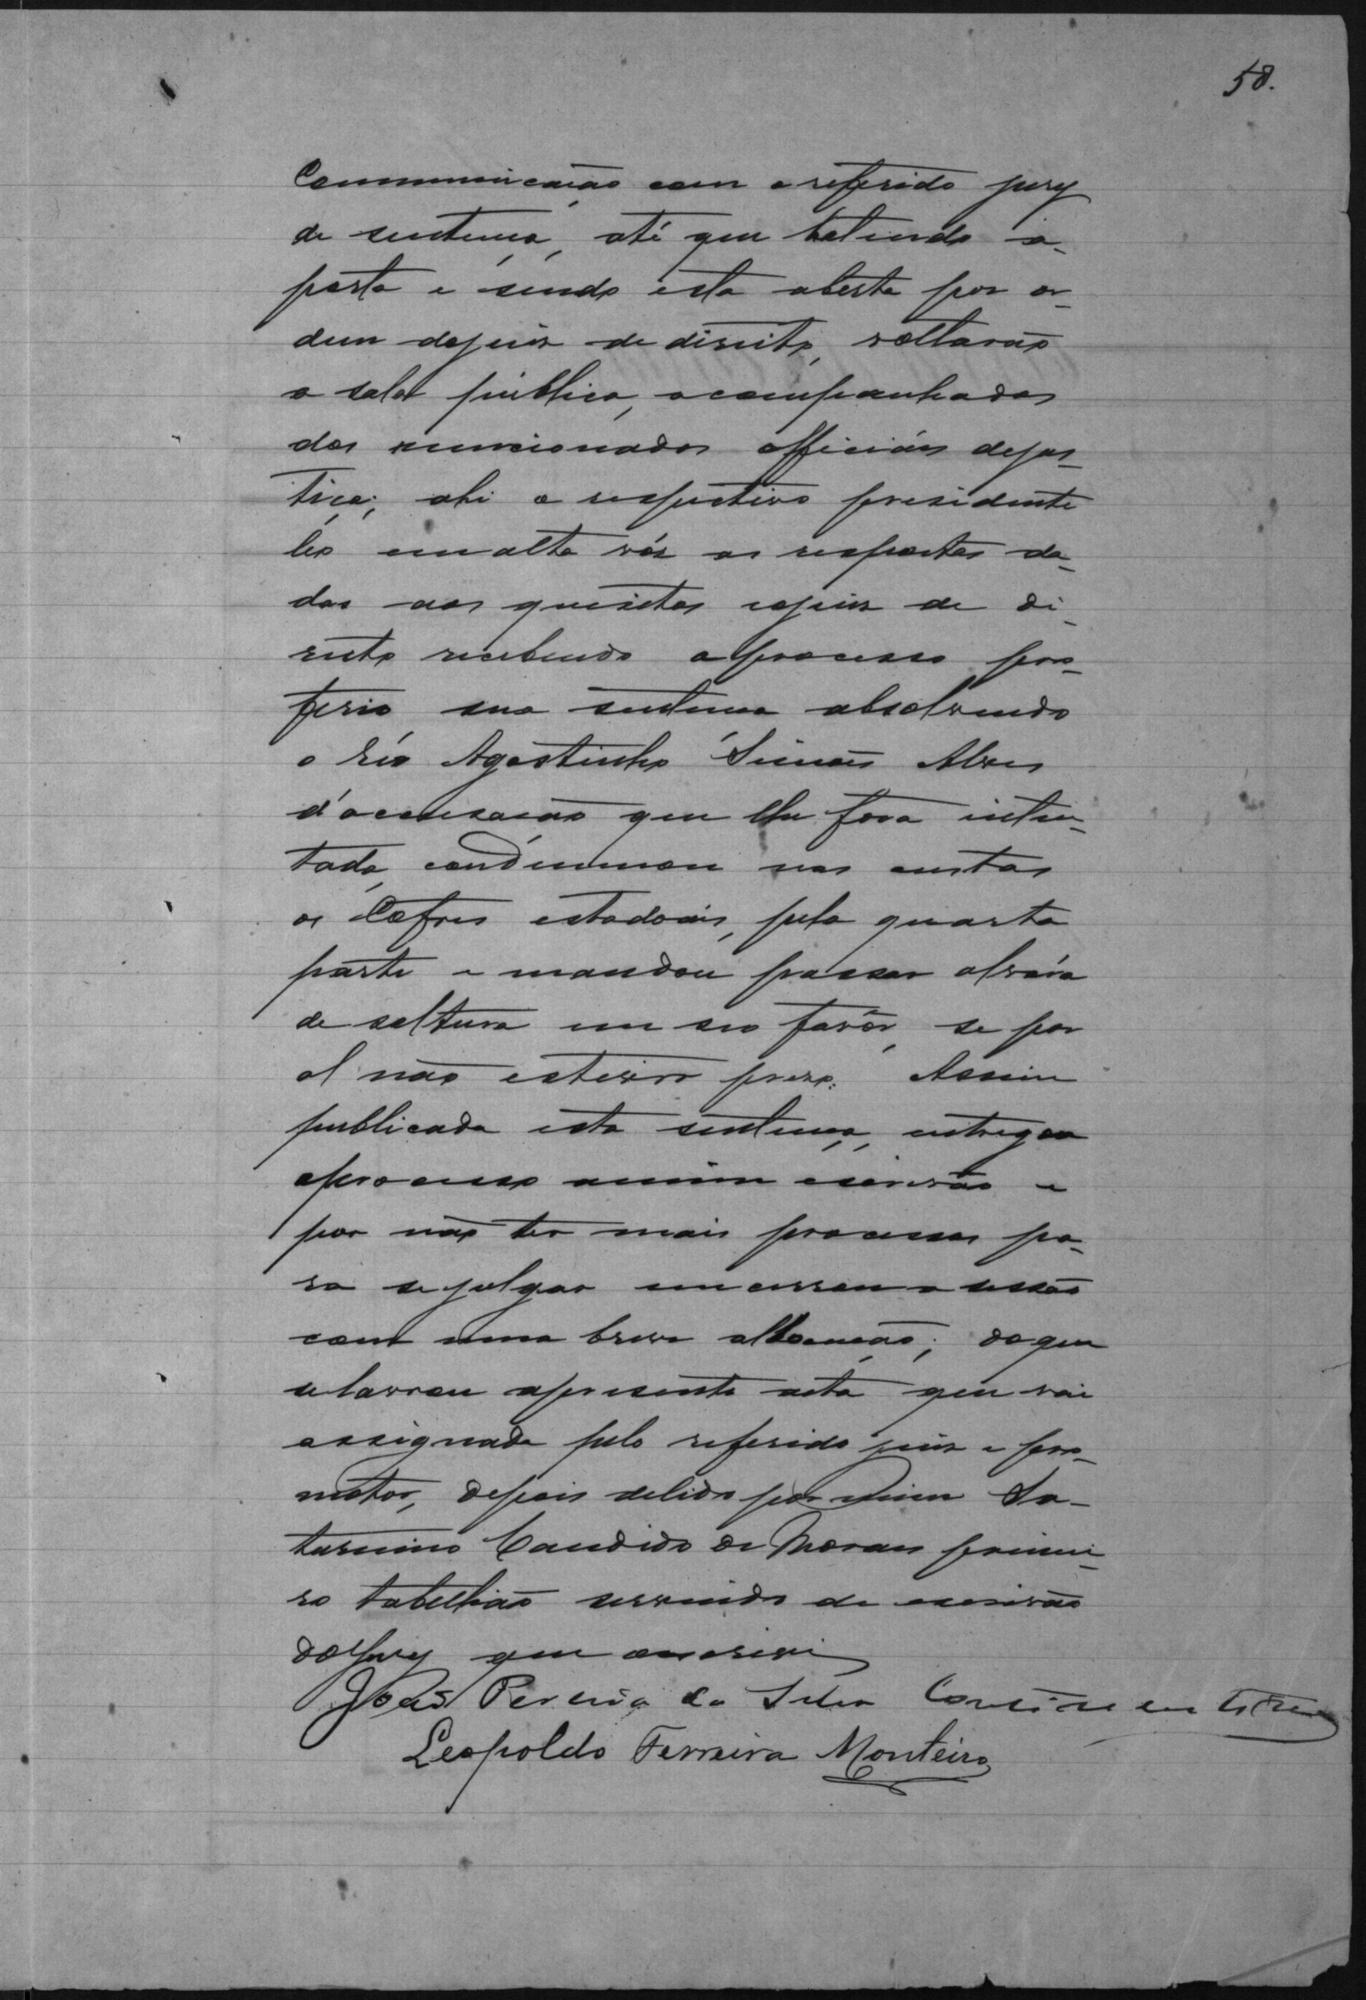 58.
Communicação com o referido jury
de sentença, até que batendo a
porta e sendo esta aberta por or-
dem do juiz de direito, voltarão
a sala publica, acompanhados
dos mencionados officiáes de jus-
tiça; ahi o respectivo presidente
leo em alta vóz as respostas da-
das aos quesitos e o juiz de di-
reito recebendo o processo pro-
ferio sua sentença absolvendo
o réo Agostinho Simões Alves
d'accusação que lhe fora inten-
tada, condemnou nas custas
os Cofres estadoáis, pela quarta
parte e mandou passar alvará
de soltura em seo favôr, se por
al não estiver prezo. Assim
publicada esta sentença, entregou
o processo a mim escrivão e
por não ter mais processos pa-
ra se julgar encerrou a sessão
com uma breve allocução; do que
se lavrou a presente acta que vai
assignada pelo referido juiz e pro-
motor, depois de lida por mim Sa-
turnino Candido de Moraes primei-
ro tabellião servindo de escrivão
do Jury que o escrevi
João Pereira da Silva
Leopoldo Ferreira Monteiro